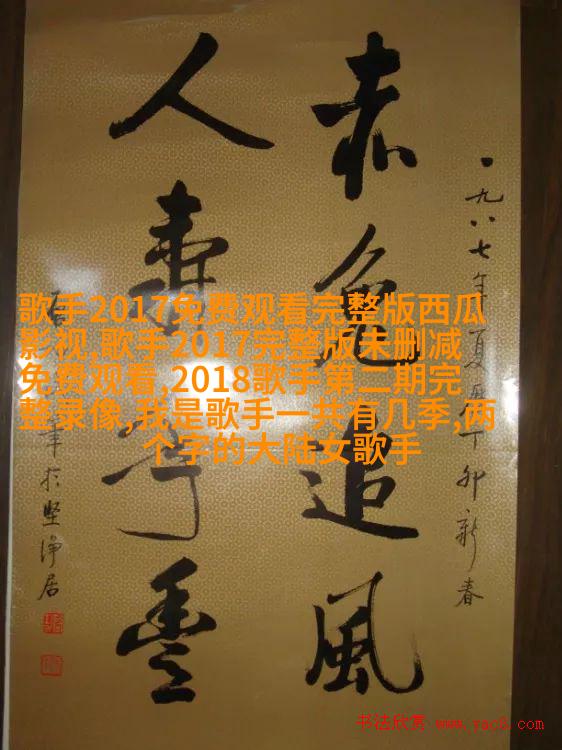 一九八七年夏历丁卯新春
赤兔追風
人壽年豐
於坚净居
歌手2017免费观看完整版西瓜
影视,歌手2017完整版未删减
免费观看,2018歌手第二期完
整录像,我是歌手一共有几季,两
个字的大陆女歌手
书法欣赏 www.yac8.com